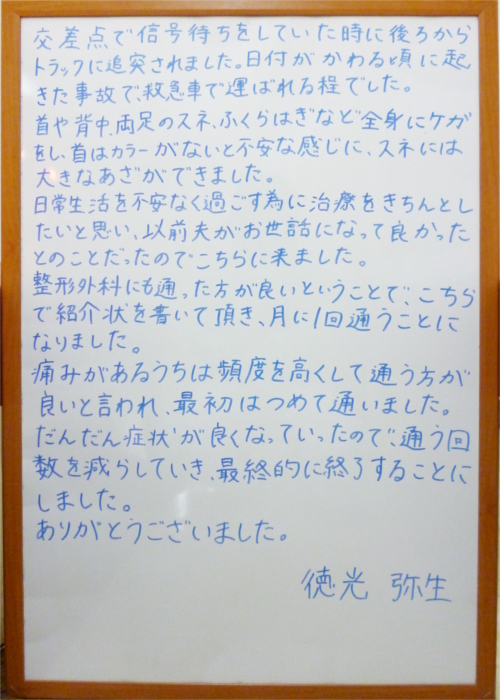 交差点で信号待ちをしていた時に後ろから
トラックに追突されました。日付がかわる頃に起
きた事故で、救急車で運ばれる程でした。
首や背中、両足のスネ、ふくらはぎなど全身にケガ
をし、首はカラーがないと不安な感じに、スネには
大きなあざができました。
日常生活を不安なく過ごす為に治療をきちんとし
たいと思い、以前夫がお世話になって良かった
とのことだったのでこちらに来ました。
整形外科にも通った方が良いということで、こちら
で紹介状を書いて頂き、月に1回通うことに
なりました。
痛みがあるうちは頻度を高くして通う方が
良いと言われ、最初はつめて通いました。
だんだん症状が良くなっていったので、通う回
数を減らしていき、最終的に終了することに
しました。
ありがとうございました。
徳光 弥生